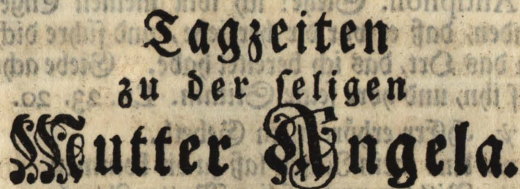 Tagzeiten
zu der seligen
Mutter Angela.